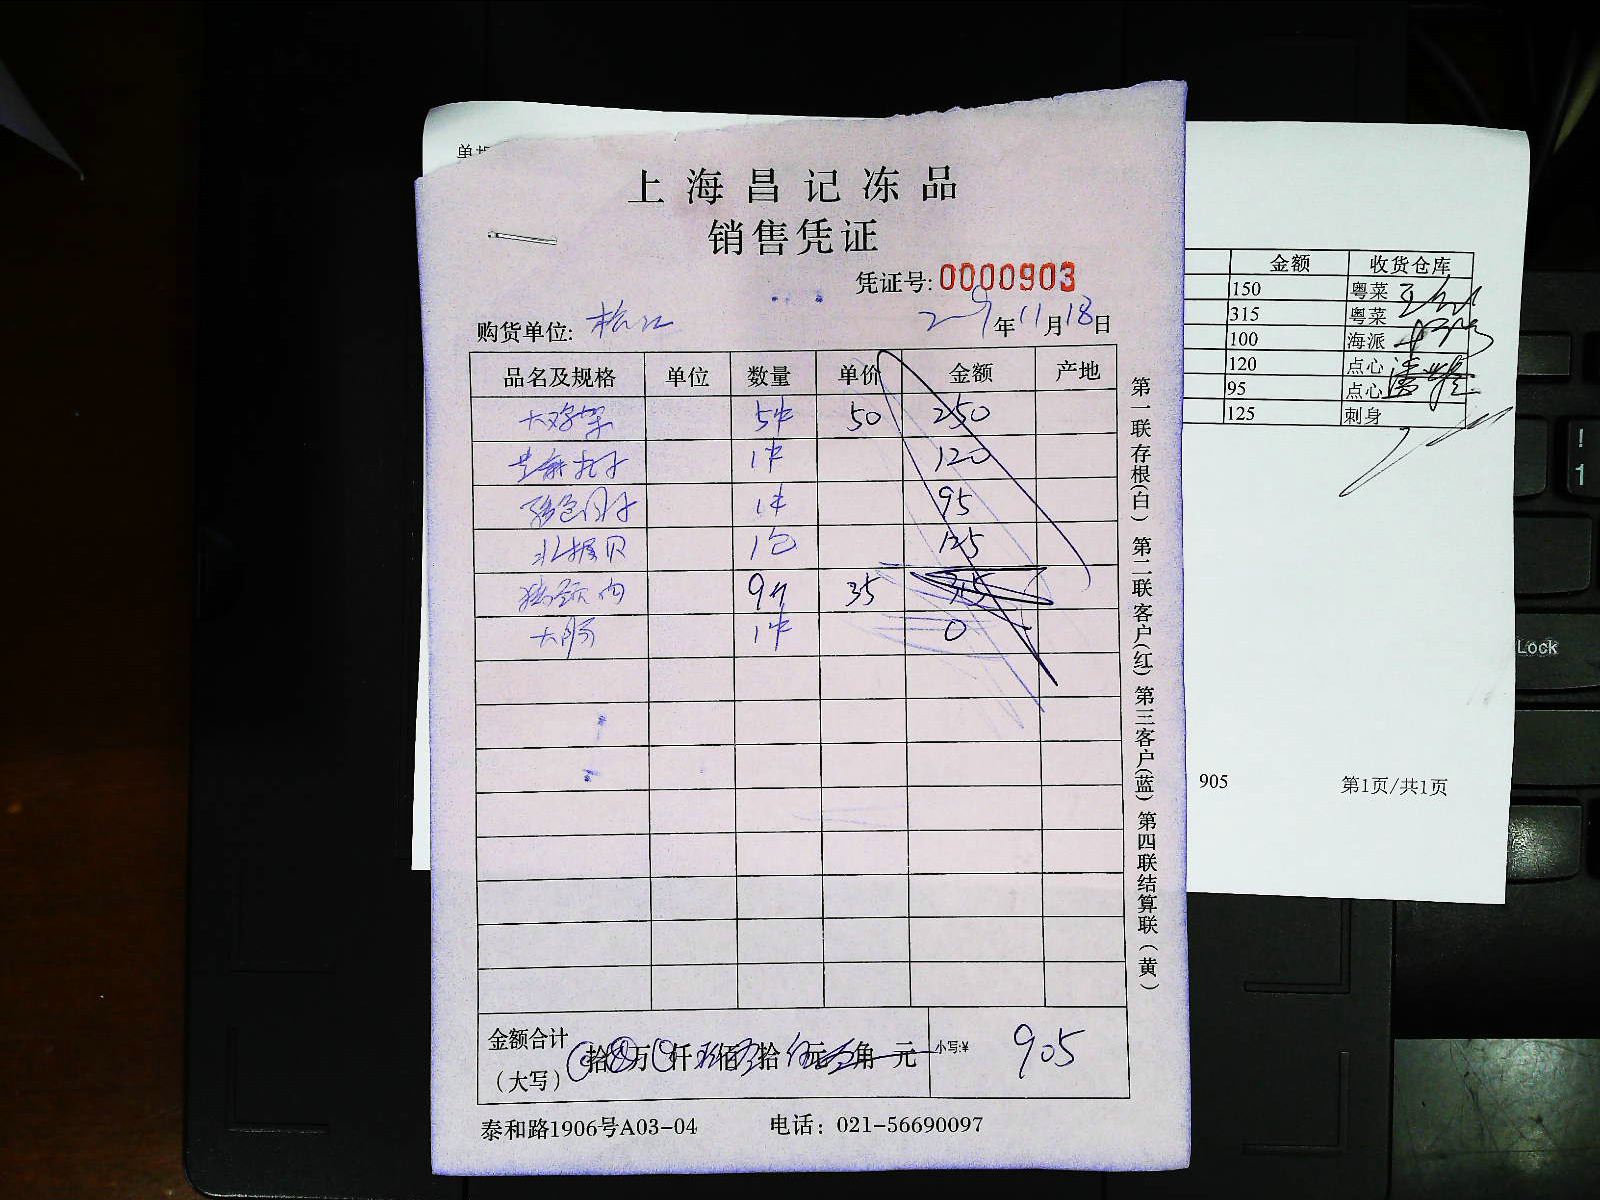 上海昌记冻品
销售凭证
凭证号:0000903
购货单位: 松江 2019年11月18日
品名及规格 单位 数量 单价 金额 产地
大鸡架 5件 50 250
1件 120
1件 95
北极贝 1包 125
猪颈肉 9 35
大肠 1件 0
金额合计
(大写) 拾 万 仟 佰 拾 元 角 元 小写:¥ 905
泰和路1906号A03-04 电话: 021-56690097
第一联存根(白) 第二联客户(红) 第三客户(蓝) 第四联结算联(黄)
金额 收货仓库
150 粤菜
315 粤菜
100 海派
120 点心
95 点心
125 刺身
905 第1页/共1页
Lock
!
1